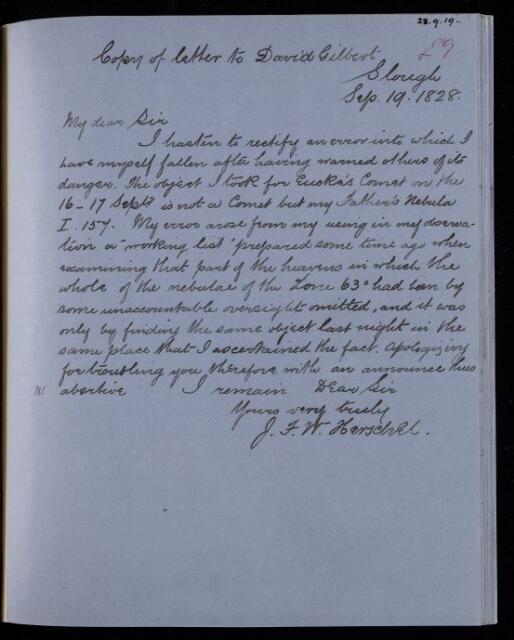 28.9.19.
£9
Copy of letter to David Gilbert
Slough
Sep. 19. 1828.
My dear Sir
I hasten to rectify an error into which I
have myself fallen after having warned others of its
danger. The object I took for Encke's Comet on the
16-17 Septr is not a Comet but my Father's Nebula
I. 157. My error arose from my using in my observa-
tion a "working list" prepared some time ago when
examining that part of the heavens in which the
whole of the nebulae of the Zone 63° had been by
some unaccountable oversight omitted, and it was
only by finding the same object last night in the
same place that I ascertained the fact. Apologizing
for troubling you therefore with an announce thus
abortive I remain Dear Sir
Yours very truly
J. F. W. Herschel.